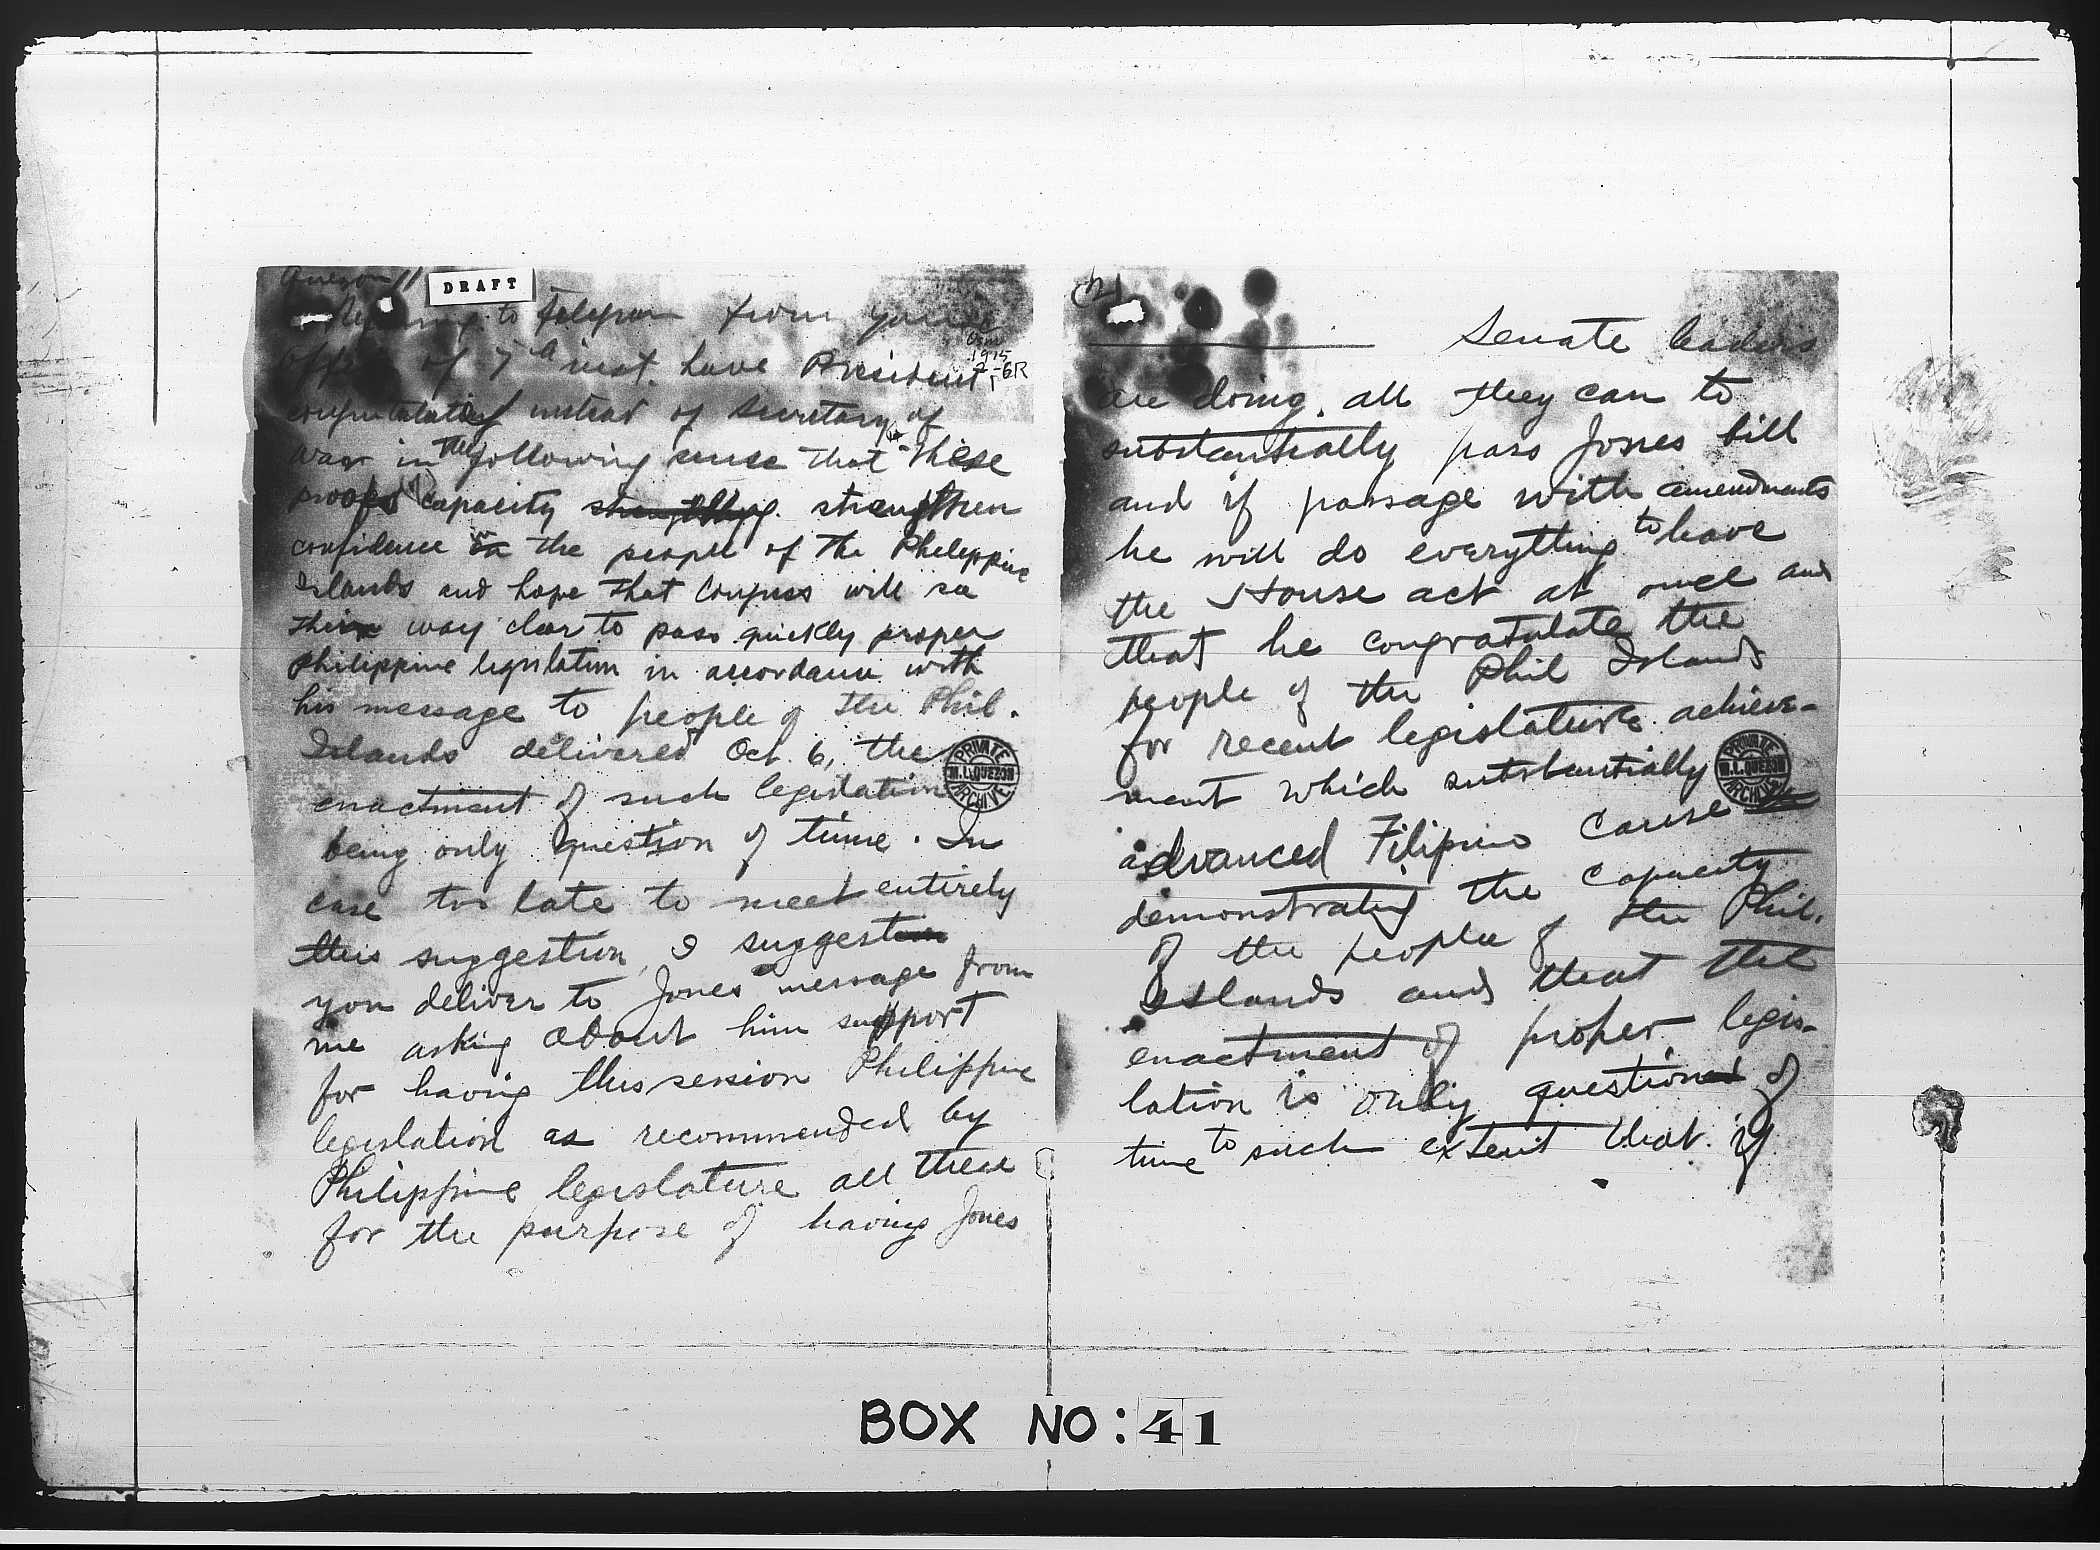 Quezon
DRAFT
Referring to telegram from your
office of 7th inst. have President
Osm
1915
-6R
congratulating instead of Secretary of
War in the following sense that these
proofs capacity strengthen
confidence in the people of the Philippine
Islands and hope that Congress will see
their way clear to pass quickly proper
Philippine legislation in accordance with
his message to people of the Phil.
Islands delivered Oct. 6, the
enactment of such legislation
being only question of time. In
case too late to meet entirely
this suggestion, I suggest
you deliver to Jones message from
me asking about him support
for having this session Philippine
legislation as recommended by
Philippine legislature all these
for the purpose of having Jones
2)
Senate leaders
are doing all they can to
substantially pass Jones bill
and if passage with amendments
he will do everything to have
the House act at once and
that he congratulate the
people of the Phil Islands
for recent legislature achieve-
ment which substantially
advanced Filipino cause
demonstrating the capacity
of the people of the Phil.
Islands and that the
enactment of proper legis-
lation is only question of
time to such extent that if
PRIVATE
M.L. QUEZON
ARCHIVE
PRIVATE
M.L. QUEZON
ARCHIVE
BOX NO: 41